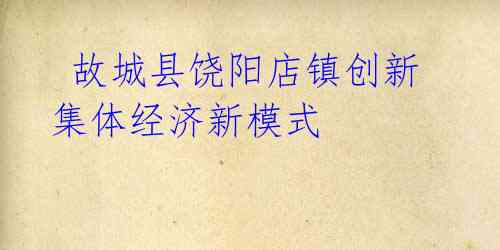 故城县饶阳店镇创新
集体经济新模式